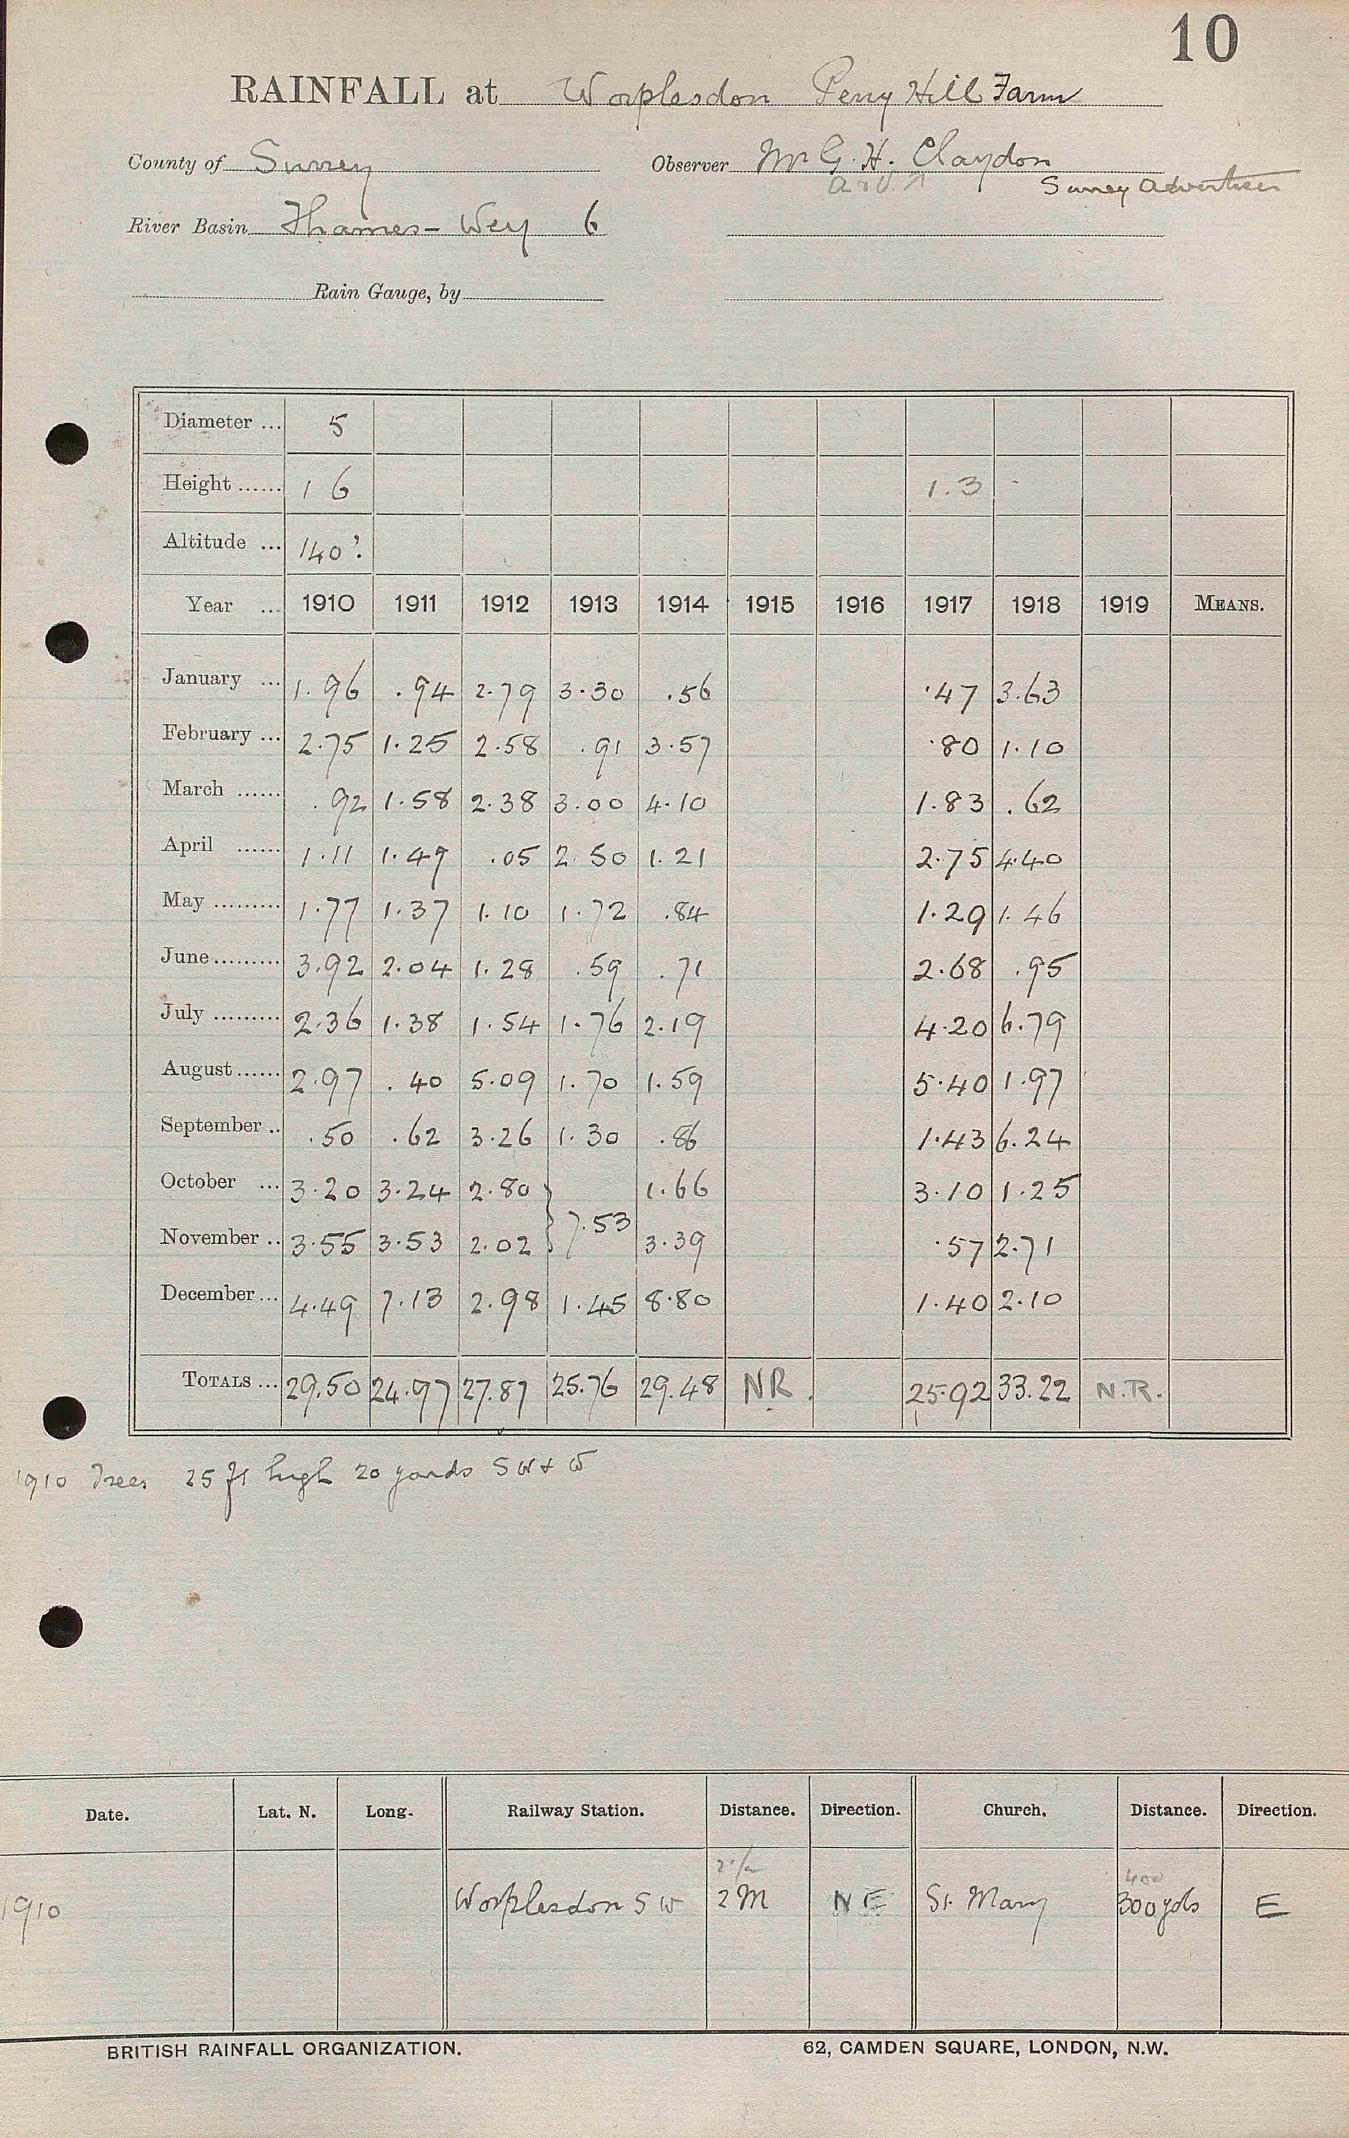 10
RAINFALL at Worplesdon Perry Hill Farm
County of Surrey Observer Mr G. H. Claydon
Surrey Advertiser
River Basin Thames - Wey 6
Rain Gauge, by
Diameter ... 5
Height ...... 1 6 1.3
Altitude ... 140'.
Year ... 1910 1911 1912 1913 1914 1915 1916 1917 1918 1919 MEANS.
January ... 1.96 .94 2.79 3.30 .56 .47 3.63
February ... 2.75 1.25 2.58 .91 3.57 .80 1.10
March ...... .92 1.58 2.38 3.00 4.10 1.83 .62
April ...... 1.11 1.49 .05 2.50 1.21 2.75 4.40
May ......... 1.77 1.37 1.10 1.72 .84 1.29 1.46
June ......... 3.92 2.04 1.28 .59 .71 2.68 .95
July ......... 2.36 1.38 1.54 1.76 2.19 4.20 6.79
August ...... 2.97 .40 5.09 1.70 1.59 5.40 1.97
September .. .50 .62 3.26 1.30 .86 1.43 6.24
October ... 3.20 3.24 2.80 1.66 3.10 1.25
} 7.53
November .. 3.55 3.53 2.02 3.39 .57 2.71
December ... 4.49 7.13 2.98 1.45 8.80 1.40 2.10
TOTALS ... 29.50 24.97 27.87 25.76 29.48 NR. 25.92 33.22 N.R.
1910 Trees 25 ft high 20 yards SW & W
Date. Lat. N. Long. Railway Station. Distance. Direction. Church. Distance. Direction.
400
1910 Worplesdon S W 2 M N E St. Mary 300 yds E
BRITISH RAINFALL ORGANIZATION. 62, CAMDEN SQUARE, LONDON, N.W.